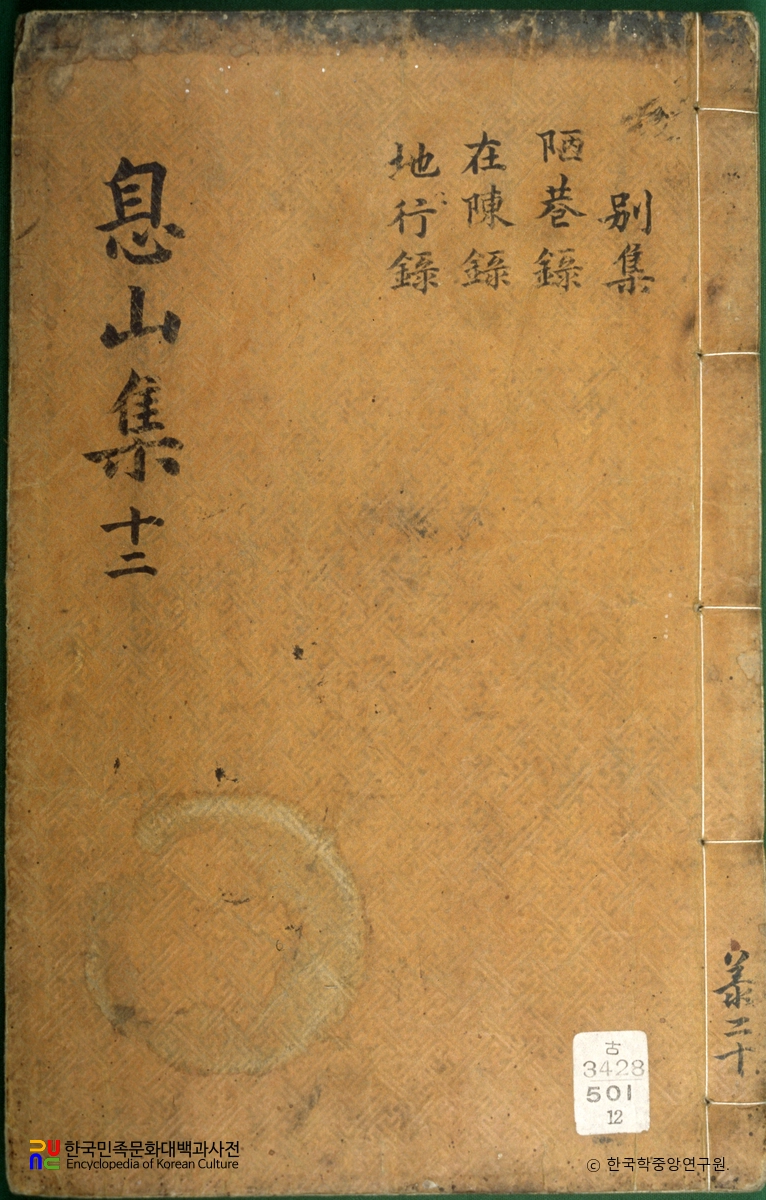 別集
陋巷錄
在陳錄
地行錄
息山集 十二
共二十
古
3428
501
12
한국민족문화대백과사전
Encyclopedia of Korean Culture
© 한국학중앙연구원.